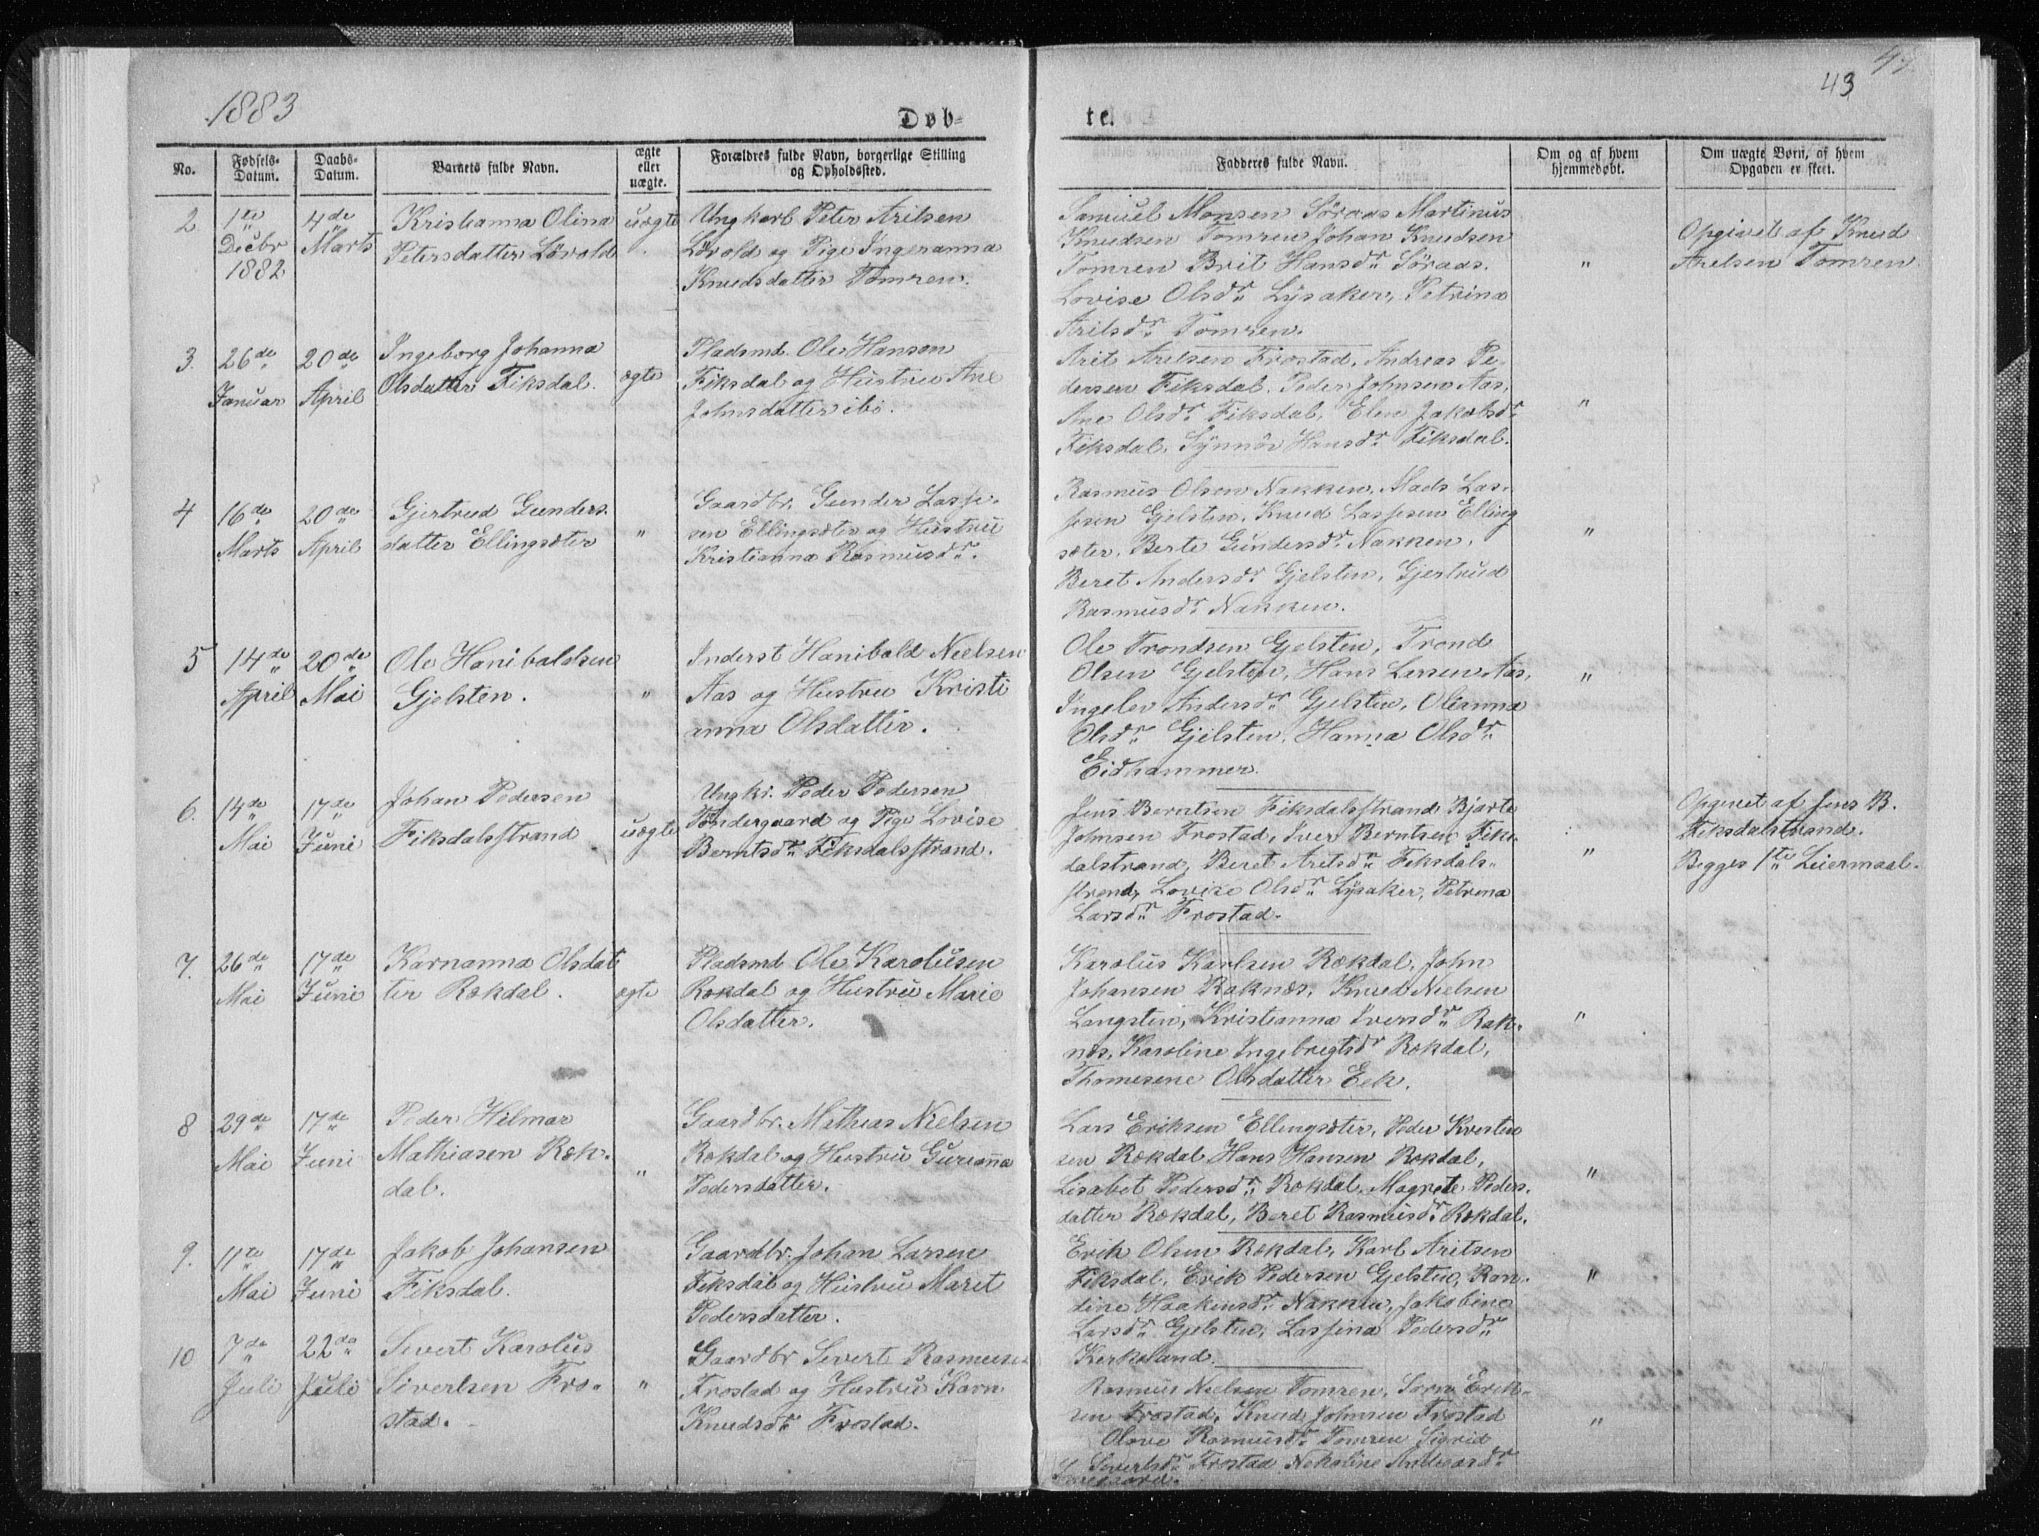 1883
Døb-
te.
43
No.
Fødsels-
Datum.
Daabs-
Datum.
Barnets fulde Navn.
ægte
eller
uægte.
Forældres fulde Navn, borgerlige Stilling
og Opholdssted.
Fadderes fulde Navn.
Om og af hvem
hjemmedøbt.
Om uægte Børn, af hvem
Opgaven er skeet.
2.
1ste
Decbr
1882
4de
Marts
Kristianna Olina
Petersdatter Løvold
uægte
Ungkarl Peter Aritsen
Løvold og Pige Ingeranna
Knudsdatter Tomren.
Samuel Monsen Søraas Martinus
Knudsen Tomren Johan Knudsen
Tomren Brit Hansdr. Søraas.
Lovise Olsdr. Lysaker, Petrina
Aritsdr. Tomren.
"
Opgivet af Knud
Arelsen Tomren
3.
26de
Januar
20de
April
Ingeborg Johanna
Olsdatter Fiksdal.
ægte
Pladsmd. Ole Hanson
Fiksdal og Hustru Ane
Johnsdatter ibd.
Arit Arelsen Frostad, Andreas Pe-
dersen Fiksdal, Peder Johnsen Aas,
Ane Olsdr. Fiksdal, Elen Jakobsdr.
Fiksdal, Synnøv Hansdr. Fiksdal.
"
4
16de
Marts
20de
April
Gjertrud Gunders-
datter Ellingsæter
"
Gaardbr. Gunder Lasse-
sen Ellingsæter og Hustru
Kristianna Rasmusdr.
Rasmus Olsen Nakken, Mads Las-
sesen Gjelsten, Knud Lassesen Elling
sæter, Berte Gundersdr. Nakken,
Beret Andersdr. Gjelsten, Gjertrud
Rasmusdr. Nakken.
"
5
14de
April
20de
Mai
Ole Hanibaldsen
Gjelsten.
"
Inderst Hanibald Nielsen
Aas og Hustru Kristi
anna Olsdatter.
Ole Trondsen Gjelsten, Trond
Olsen Gjelsten, Hans Larsen Aas,
Ingelev Andersdr. Gjelsten, Olianna
Olsdr. Gjelsten, Hanna Olsdr.
Eidhammer.
"
6.
14de
Mai
17de
Juni
Johan Pedersen
Fiksdalsstrand
uægte
Ungkr. Peder Pedersen
Tøndergaard og Pige Lovise
Berntsdr. Fiksdalsstrand.
Jens Berntsen Fiksdalsstrand Bjarte
Johnsen Frostad, Iver Berntsen Fiks-
dalstrand, Beret Aritsdr. Fiksdals-
strand, Lovise Olsdr. Lysaker, Petrina
Larsdr. Frostad.
"
Opgivet af Jens B.
Fiksdalstrand.
Begges 1ste Leiermaal.
7.
26de
Mai
17de
Juni
Karnanna Olsdat
ter Rekdal.
ægte
Pladsmd. Ole Karolusen
Rekdal og Hustru Marie
Olsdatter.
Karolus Karlsen Rekdal, John
Johansen Raknæs, Knud Nielsen
Langsten, Kristianna Iversdr. Rak-
næs, Karoline Ingebregtsdr Rekdal,
Thomesene Olsdatter Eek.
"
8
29de
Mai
17de
Juni
Peder Hilmar
Mathiasen Rek-
dal.
"
Gaardbr. Mathias Nielsen
Rekdal og Hustru Gurianna
Pedersdatter.
Lars Eriksen Ellingsæter, Peder Kersten
sen Rekdal Hans Hansen Rekdal,
Lisabet Pedersdr. Rekdal, Magrete Peders-
datter Rekdal, Beret Rasmusdr. Rekdal.
"
9.
11te
Mai
17de
Juni
Jakob Johansen
Fiksdal.
Gaardbr. Johan Larsen
Fiksdal og Hustru Maret
Pedersdatter.
Erik Olsen Rekdal, Karl Aritsen
Fiksdal, Erik Pedersen Gjelsten, Ran-
dine Haakensdr. Nakken, Jakobine
Larsdr. Gjelsten, Lassina Pedersdr.
"
10
7de
Juli
22de
Juli
Sivert Karolus
Sivertsen Fro-
stad.
"
Gaardbr Sivert Rasmusen
Frostad og Hustru Karn
Knudsdr. Frostad.
Rasmus Nielsen Tomren, Sørn Erik-
sen Frostad, Knud Johnsen Frostad
Olave Rasmusdr. Tomren Sigrid
Sivertsdr. Frostad Nekoline
"